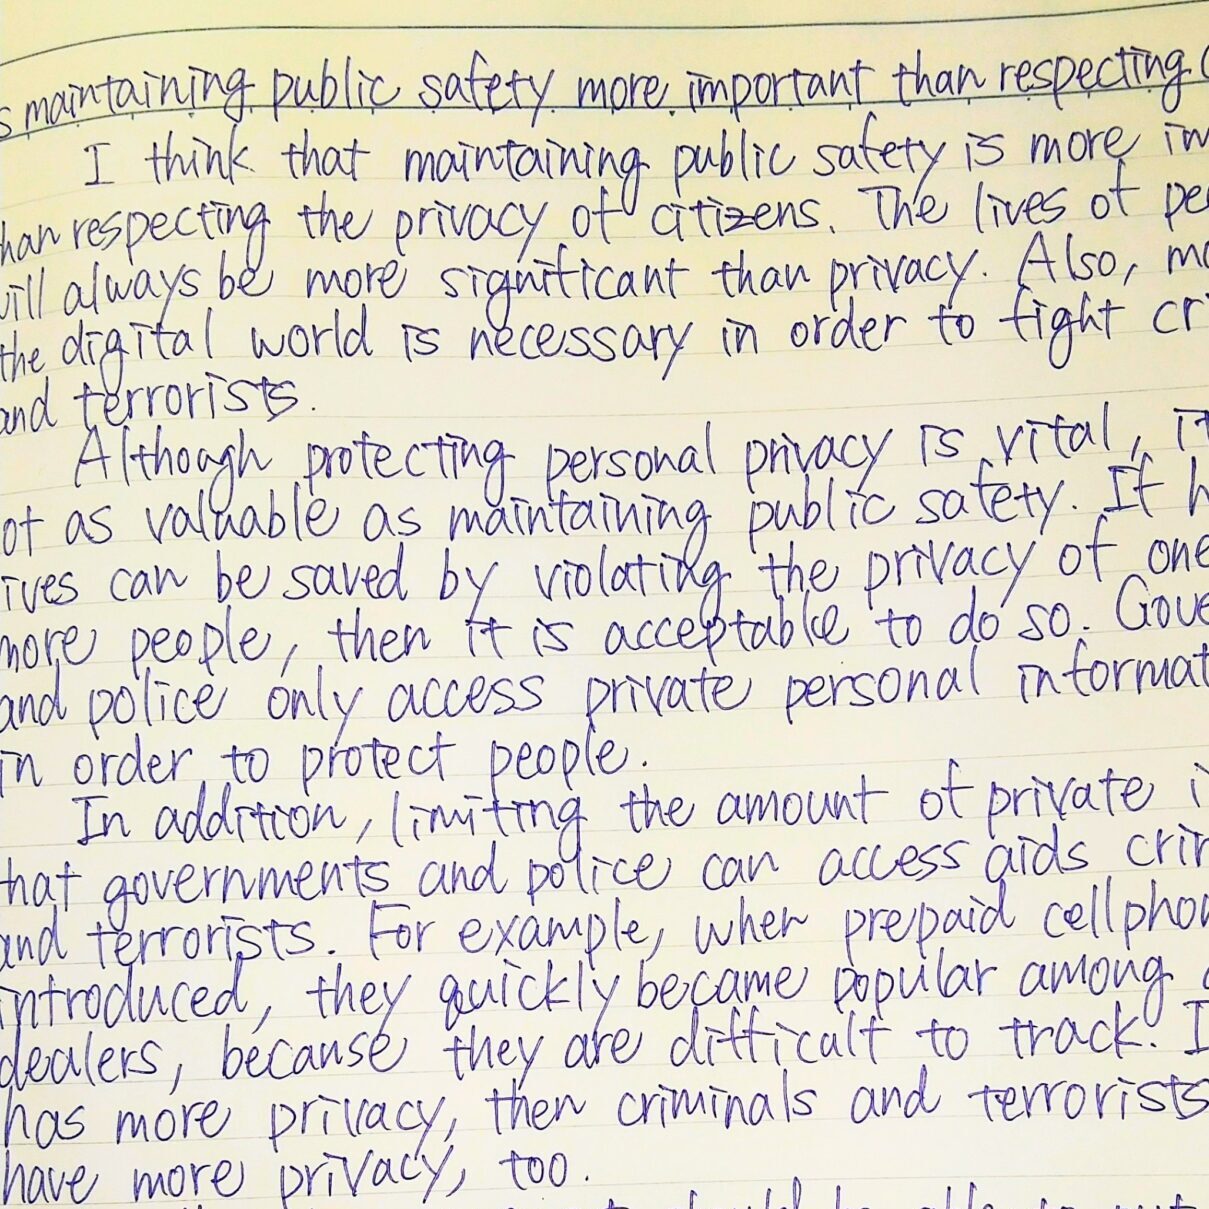 maintaining public safety more important than respecting
I think that maintaining public safety is more
respecting the privacy of citizens. The lives of
always be more significant than privacy. Also,
the digital world is necessary in order to fight
and terrorists.
Although protecting personal privacy is vital,
as valuable as maintaining public safety. If
can be saved by violating the privacy of one
more people, then it is acceptable to do so.
and police only access private personal
in order to protect people.
In addition, limiting the amount of private
governments and police can access aids
and terrorists. For example, when prepaid
introduced, they quickly became popular among
dealers, because they are difficult to track.
has more privacy, then criminals and terrorists
have more privacy, too.